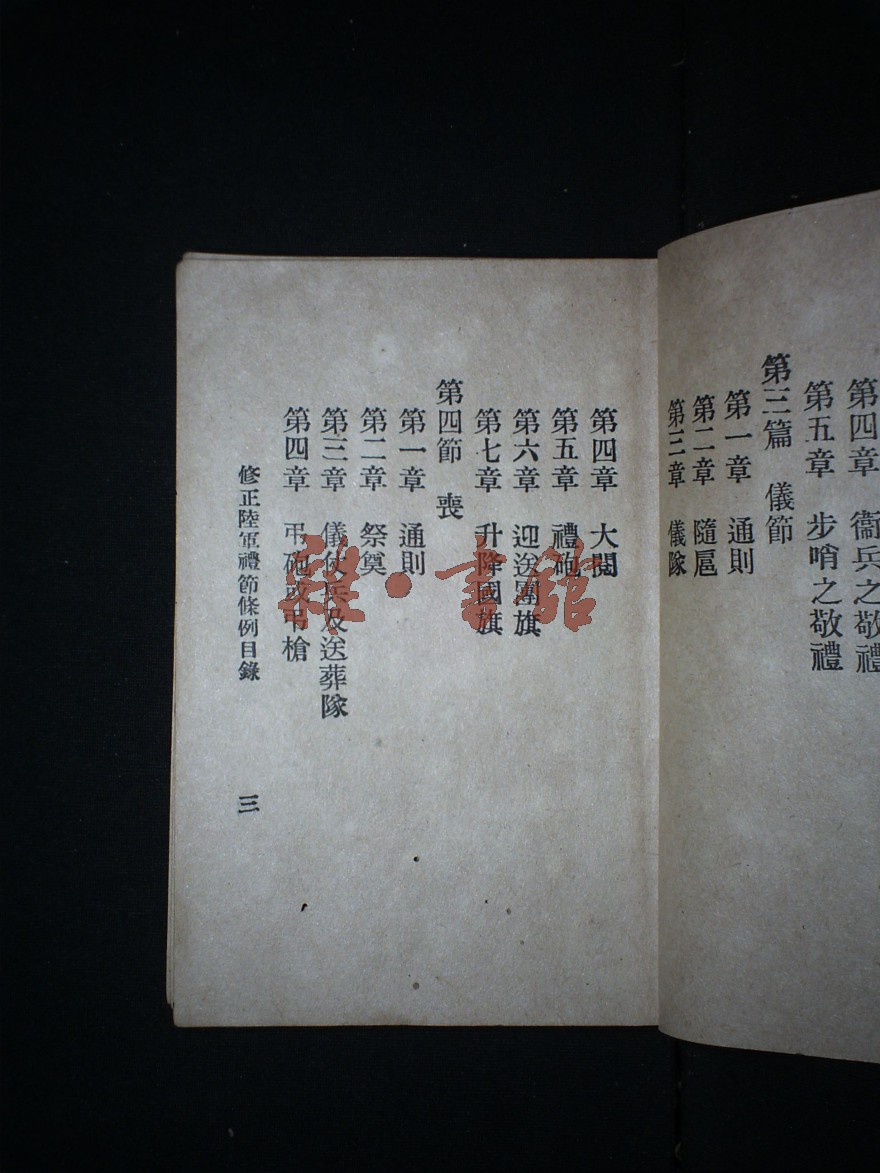 第四章 衞兵之敬禮
第五章 步哨之敬禮
第三篇 儀節
第一章 通則
第二章 隨扈
第三章 儀隊
第四章 大閱
第五章 禮砲
第六章 迎送團旗
第七章 升降國旗
第四節 喪
第一章 通則
第二章 祭奠
第三章 儀仗兵及送葬隊
第四章 弔砲或弔槍
修正陸軍禮節條例目錄
三
雜·書館